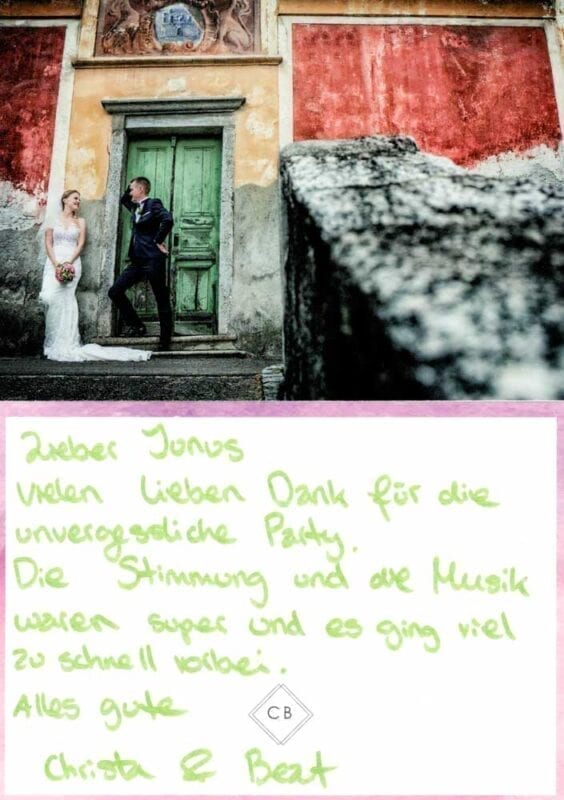 Lieber Junus
vielen lieben Dank für die
unvergessliche Party.
Die Stimmung und die Musik
waren super und es ging viel
zu schnell vorbei.
Alles gute
CB
Christa & Beat